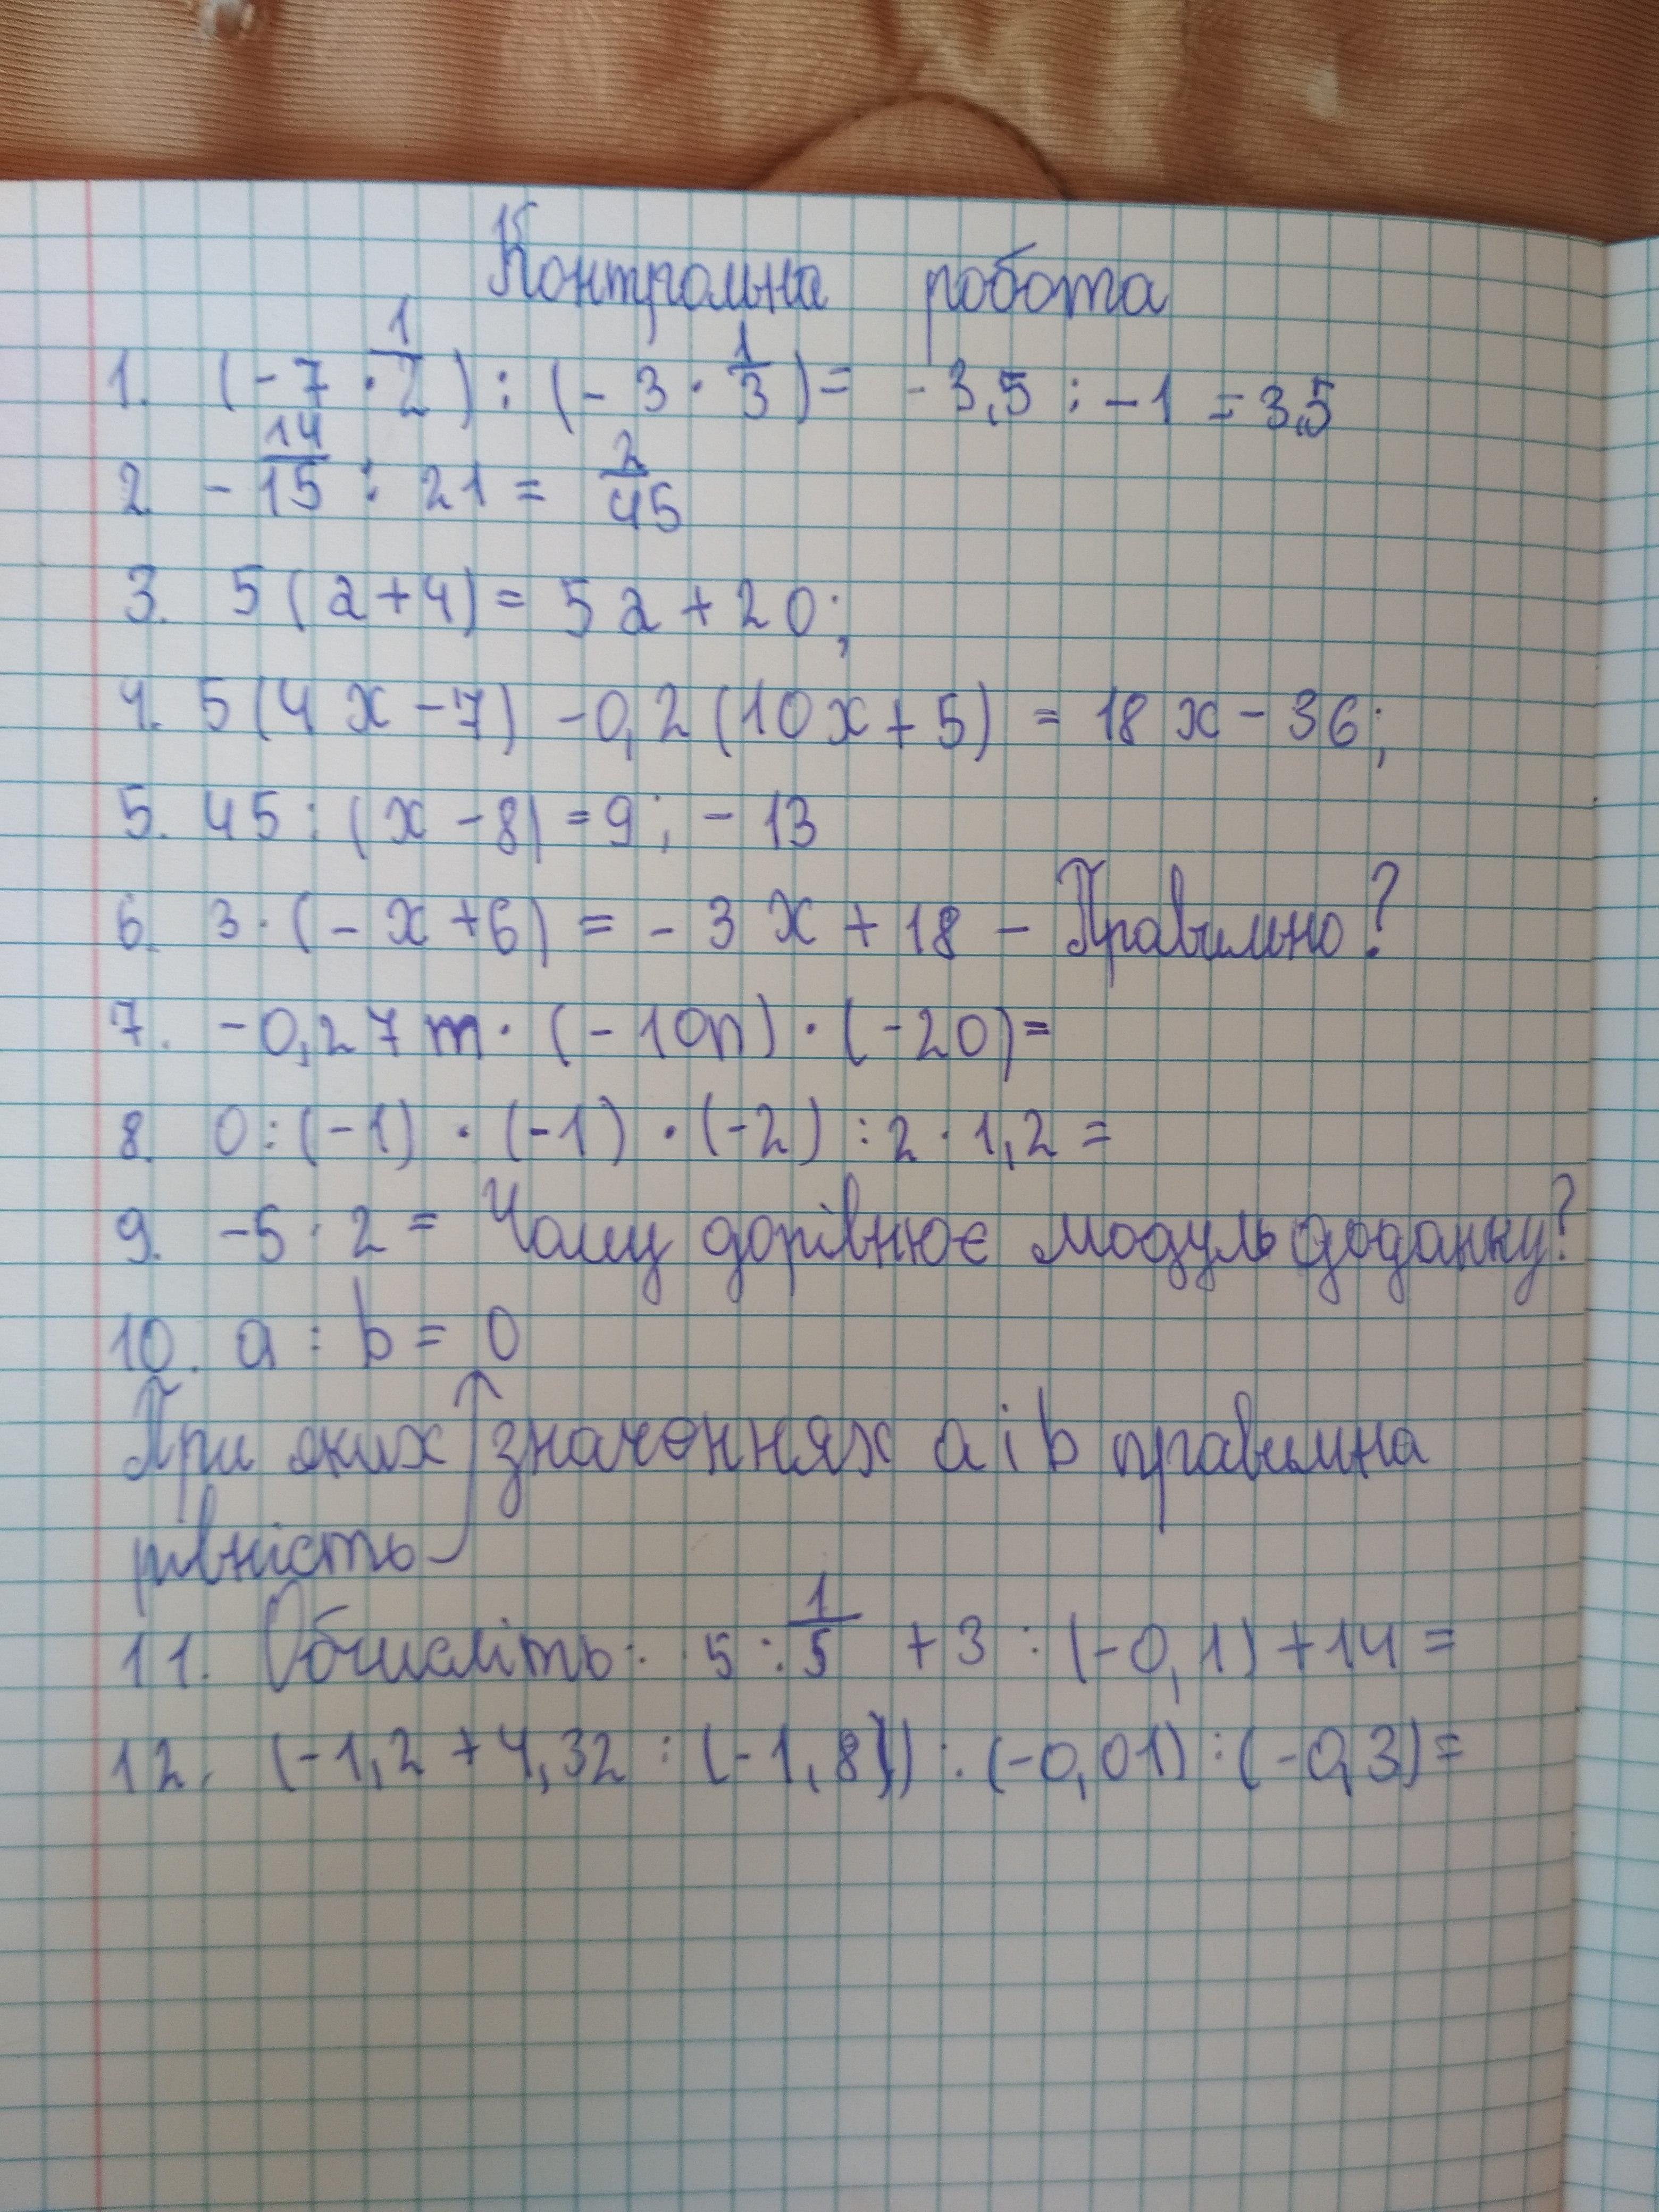 15
Контрольна робота
1. (-7 · 1/2) : (-3 · 1/3) = -3,5 : -1 = 3,5
2 - 14/15 : 21 = 2/45
3. 5(a+4) = 5a + 20;
4. 5(4x-7) -0,2(10x+5) = 18x - 36;
5. 45 : (x - 8) = 9; - 13
6. 3·(-x+6) = -3x + 18 - Правильно?
7. -0,27m · (-10n) · (-20) =
8. 0:(-1) · (-1) · (-2) : 2 · 1,2 =
9. -5 · 2 = Чому дорівнює модуль доданку?
10. a : b = 0
При яких значеннях a i b правильна
рівність
11. Обчисліть: 5 : 1/5 + 3 : (-0,1) + 14 =
12. (-1,2 + 4,32 : (-1,8)) : (-0,01) : (-0,3) =